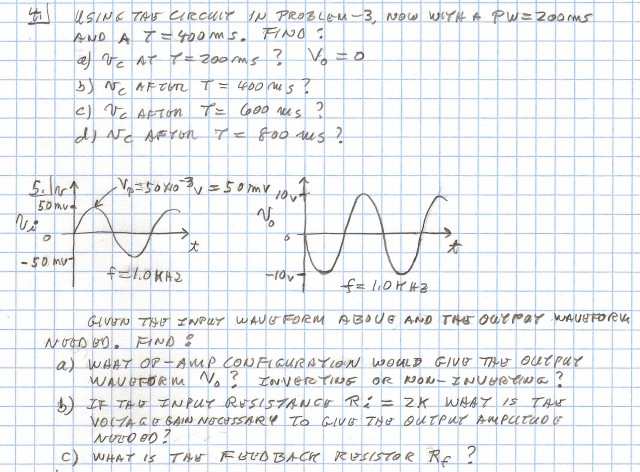 4. USING THE CIRCUIT IN PROBLEM-3, NOW WITH A PW=200ms
AND A T=400ms. FIND:
a) Vc AT T=200ms? Vo=0
b) Vc AFTER T=400ms?
c) Vc AFTER T=600ms?
d) Vc AFTER T=800ms?
5. V Vp=50x10⁻³V=50mV
50mV
Vi
0
t
-50mV
f=1.0KHZ
10V
Vo
0
t
-10V
f=1.0KHZ
GIVEN THE INPUT WAVEFORM ABOVE AND THE OUTPUT WAVEFORM
NEEDED. FIND:
a) WHAT OP-AMP CONFIGURATION WOULD GIVE THE OUTPUT
WAVEFORM Vo? INVERTING OR NON-INVERTING?
b) IF THE INPUT RESISTANCE Ri=2K WHAT IS THE
VOLTAGE GAIN NECESSARY TO GIVE THE OUTPUT AMPLITUDE
NEEDED?
c) WHAT IS THE FEEDBACK RESISTOR Rf?